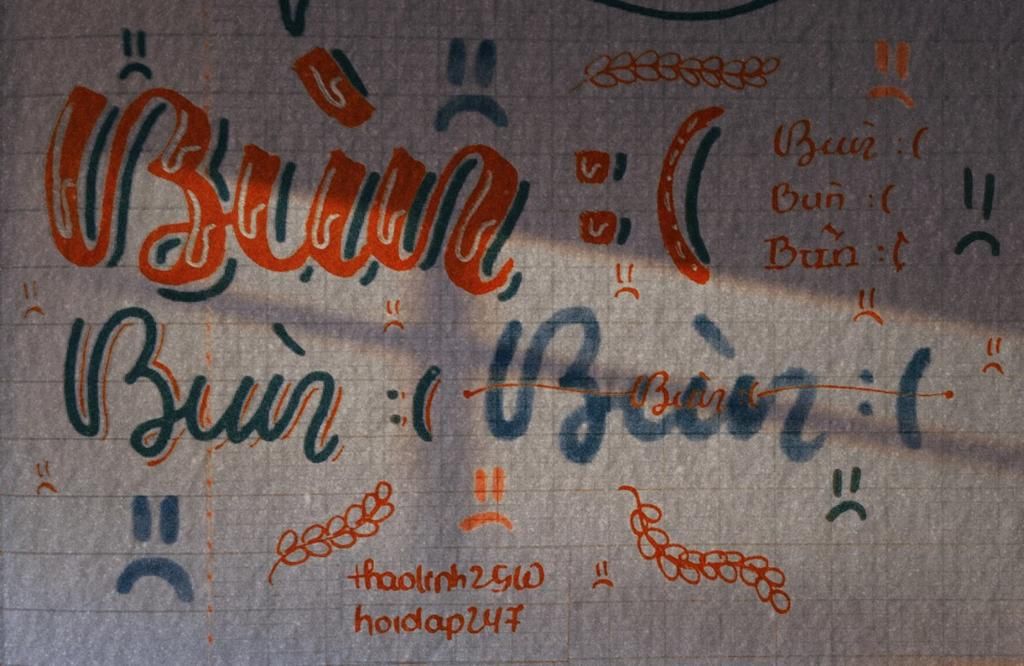 Buìn :(
Buìn :(
Buìn :(
Buìn :(
Buìn :(
Buìn :(
Buìn :(
thaolinh25W
hoidap247